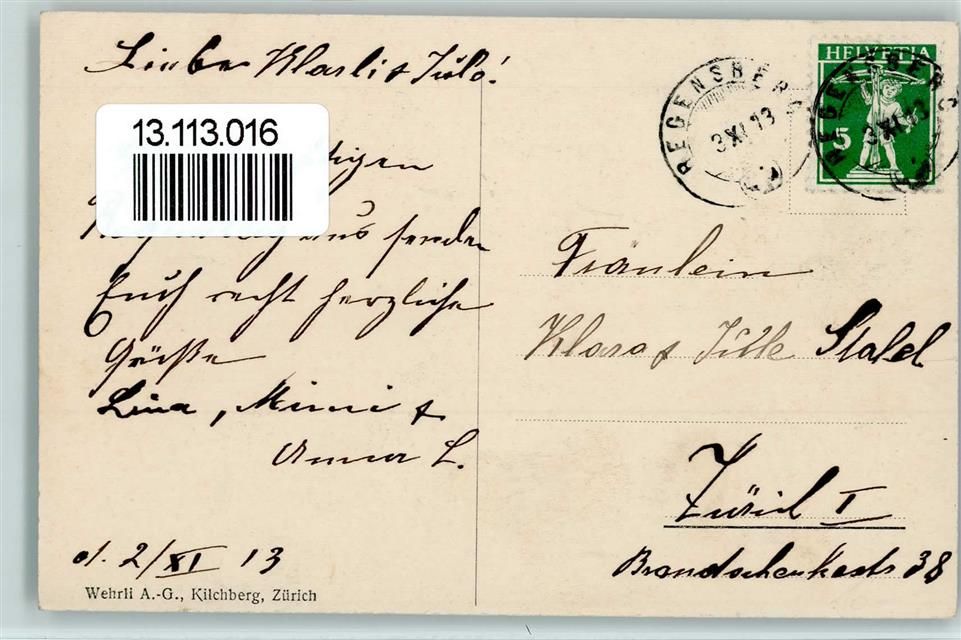 Liebe Klärli & Julö!
13.113.016
aus senden
Euch recht herzliche
Grüße
Lina, Mimi &
Anna L.
d. 2/XI 13
Wehrli A.-G., Kilchberg, Zürich
HELVETIA
5
REGENSBERG
3 XI 13
REGENSBERG
3 XI 13
Fräulein
Klara & Julie Stald
Zürich I
Brandschenkestr 38